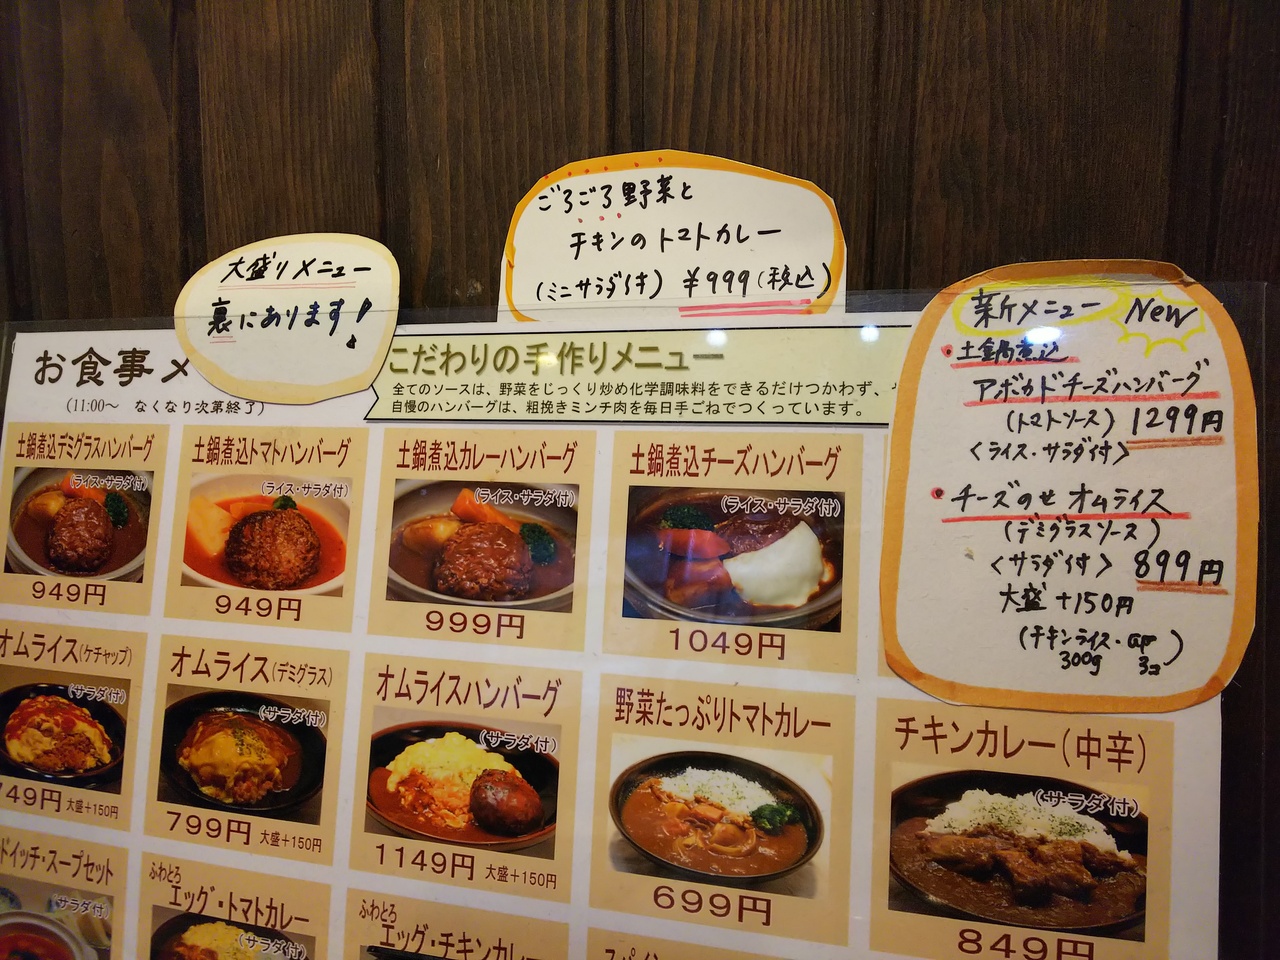 ごろごろ野菜と
チキンのトマトカレー
(ミニサラダ付) ¥999(税込)
大盛りメニュー
裏にあります!
新メニュー New
・土鍋煮込
アボカドチーズハンバーグ
(トマトソース) 1299円
<ライス・サラダ付>
・チーズのせ オムライス
(デミグラスソース)
<サラダ付> 899円
大盛+150円
(チキンライス・
300g 3コ
お食事メ
(11:00～ なくなり次第終了)
こだわりの手作りメニュー
全てのソースは、野菜をじっくり炒め化学調味料をできるだけつかわず、
自慢のハンバーグは、粗挽きミンチ肉を毎日手ごねでつくっています。
土鍋煮込デミグラスハンバーグ
(ライス・サラダ付)
949円
土鍋煮込トマトハンバーグ
(ライス・サラダ付)
949円
土鍋煮込カレーハンバーグ
(ライス・サラダ付)
999円
土鍋煮込チーズハンバーグ
(ライス・サラダ付)
1049円
オムライス(ケチャップ)
(サラダ付)
749円 大盛+150円
オムライス(デミグラス)
(サラダ付)
799円 大盛+150円
オムライスハンバーグ
(サラダ付)
1149円 大盛+150円
野菜たっぷりトマトカレー
699円
チキンカレー(中辛)
(サラダ付)
849円
ドイッチ・スープセット
(サラダ付)
ふわとろ
エッグ・トマトカレー
(サラダ付)
ふわとろ
エッグ・チキンカレー